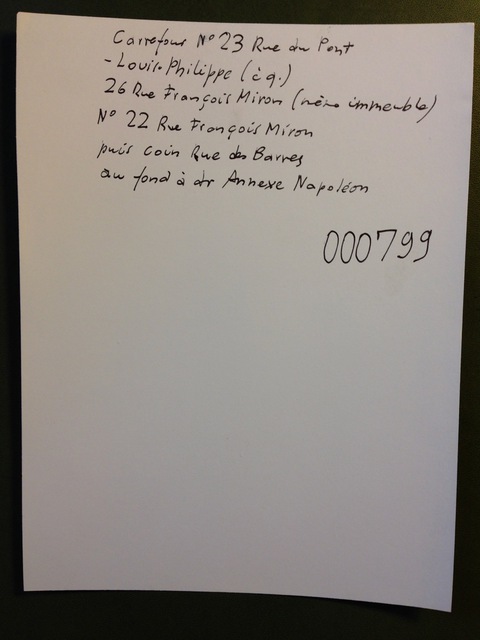 Carrefour N° 23 Rue du Pont
-Louis-Philippe (à g.)
26 Rue François Miron (même immeuble)
N° 22 Rue François Miron
puis coin Rue des Barres
au fond à dr Annexe Napoléon
000799